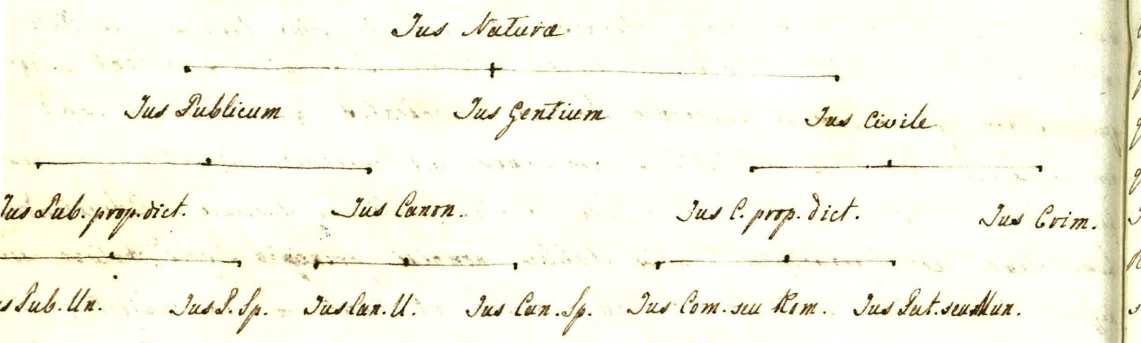 Jus Naturæ
Jus Publicum Jus Gentium Jus Civile
Jus Pub. prop. dict. Jus Canon. Jus C. prop. dict. Jus Crim.
Pub. Un. Jus P. Sp. Jus Can. U. Jus Can. Sp. Jus Com. seu Rom. Jus Pat. seu Mun.